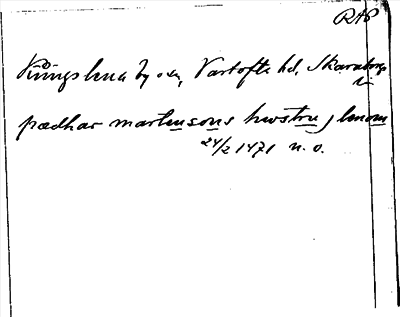 RAP
Kungslena by o sn, Vartofta hd, Skaraborgs
l.
pædhar martensons hwstru j lenom
24/2 1471 n. o.